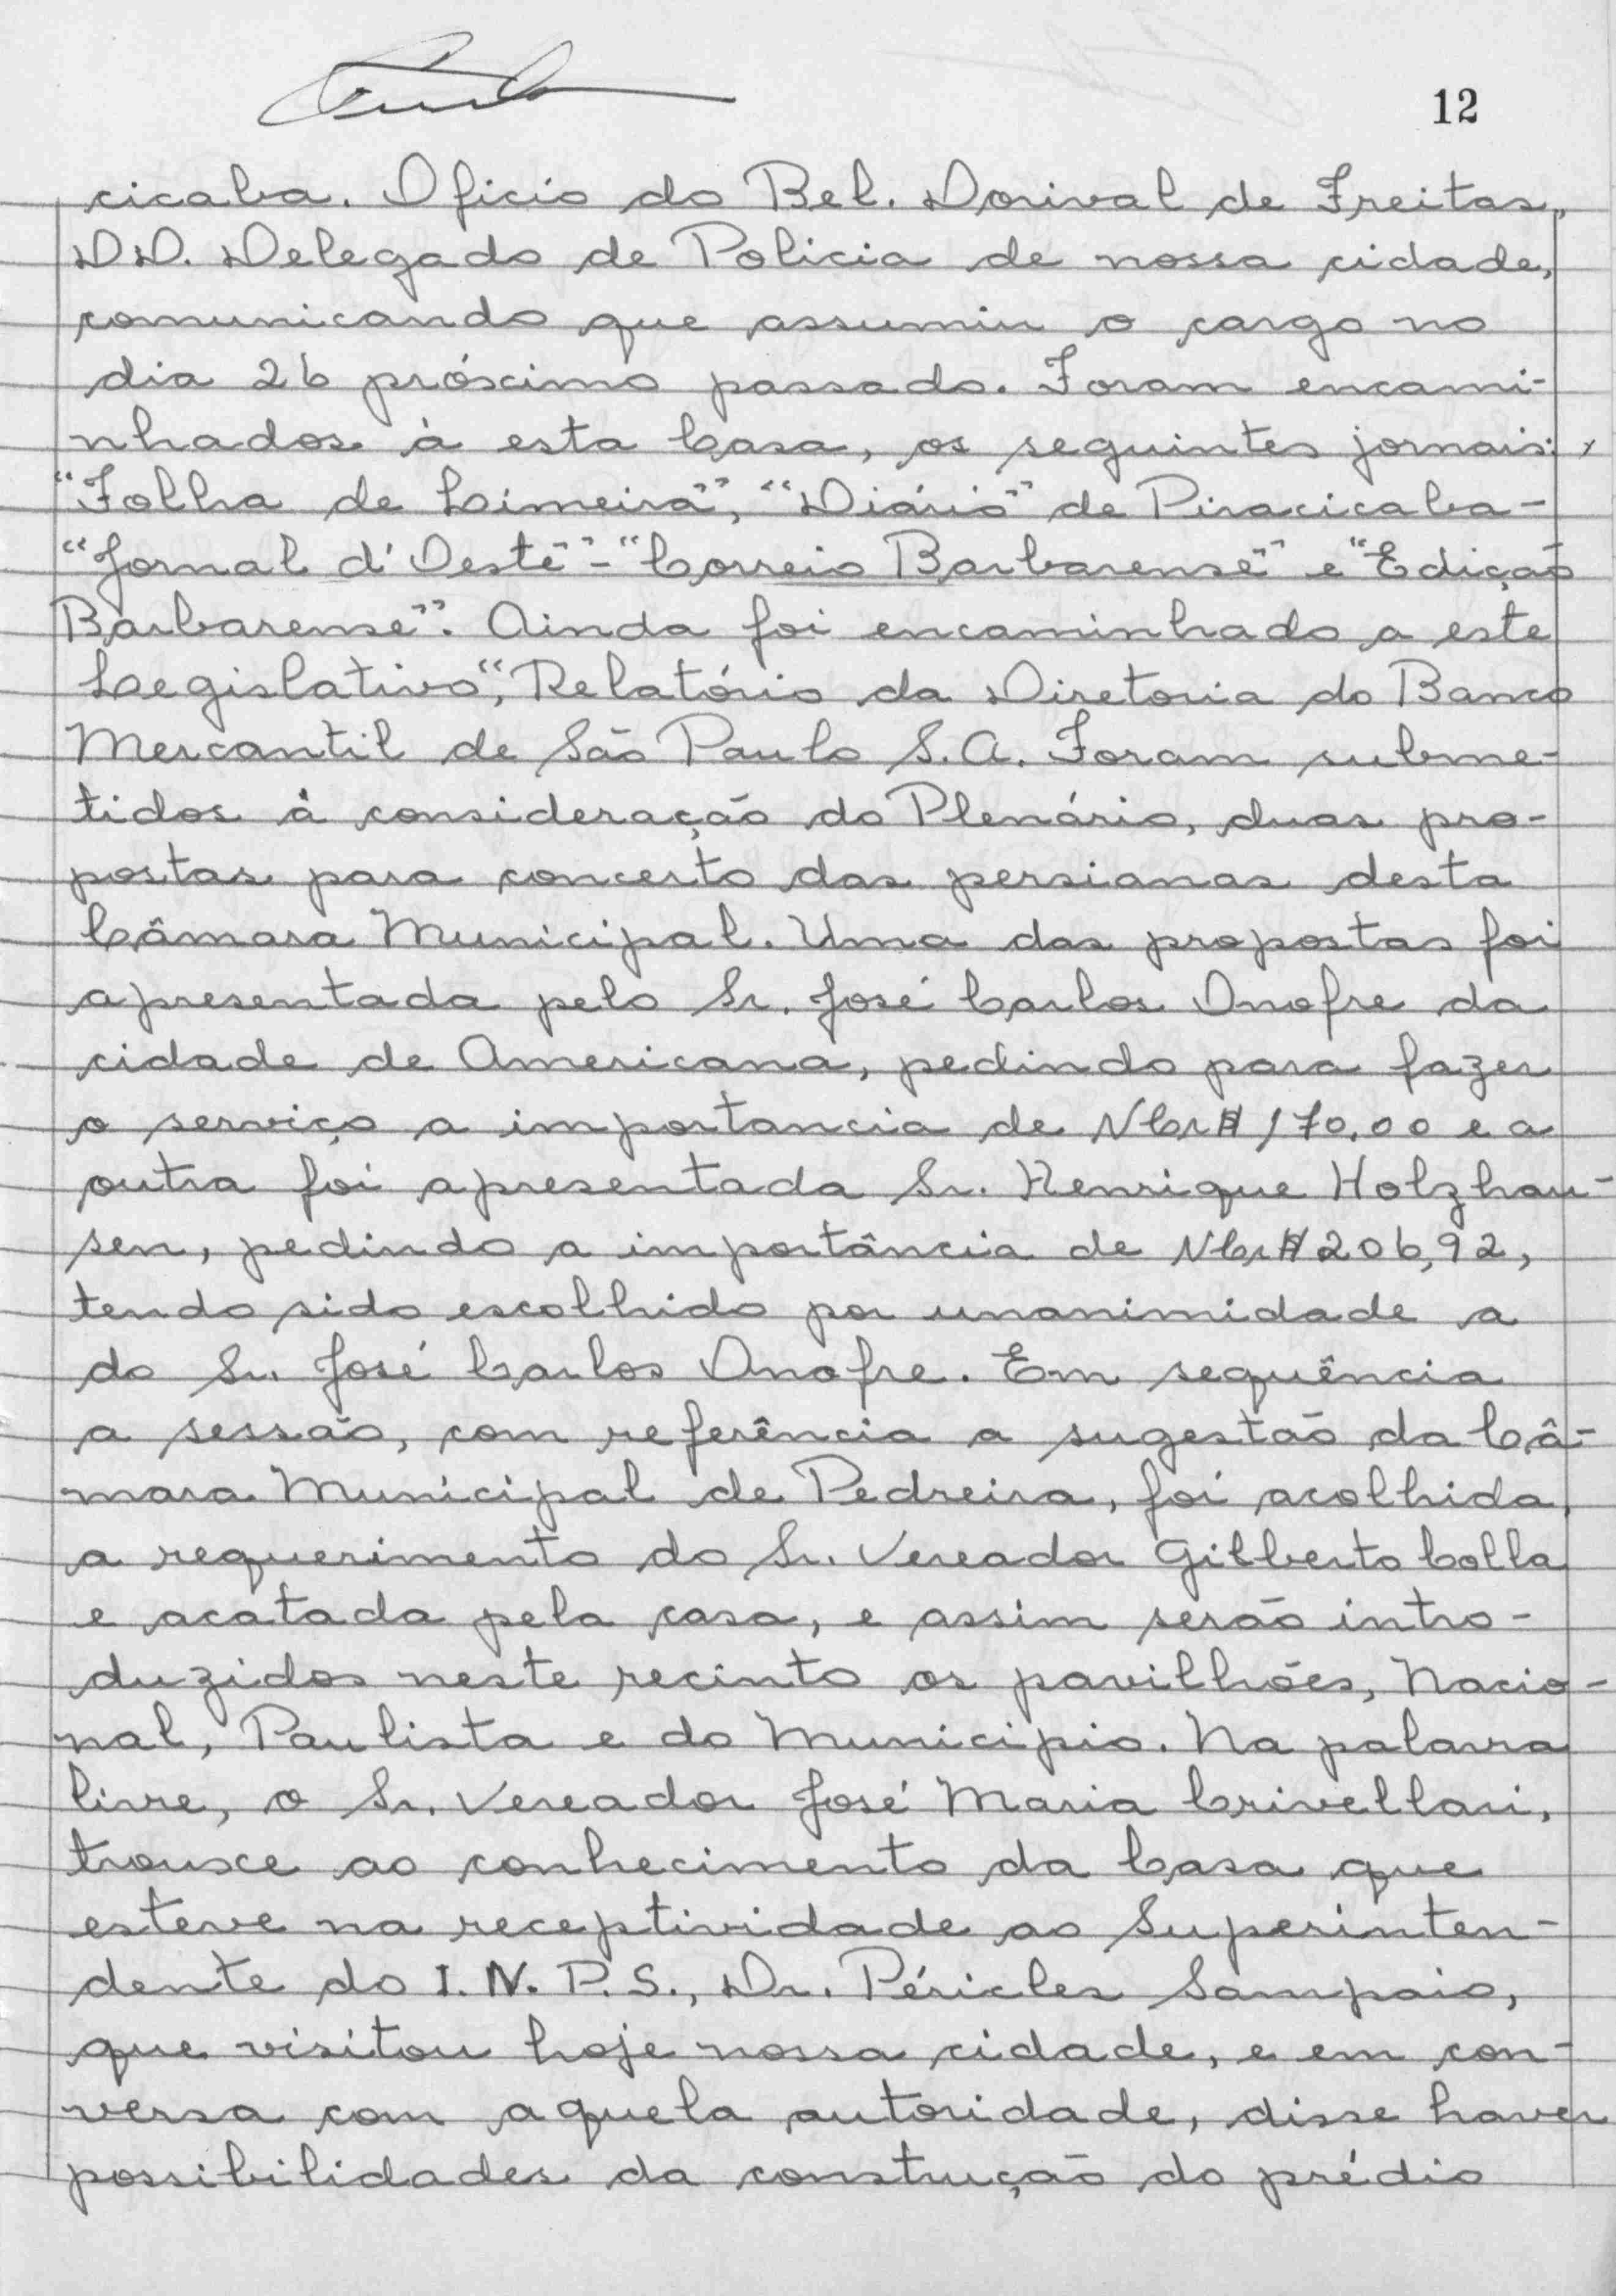 12
cicaba. Oficio do Bel. Dorival de Freitas,
DD. Delegado de Policia de nossa cidade,
comunicando que assumiu o cargo no
dia 26 próximo passado. Foram encami-
nhados à esta Casa, os seguintes jornais:,
"Folha de Limeira", "Diário" de Piracicaba-
"Jornal d'Oeste"-"Correio Barbarense" e "Edição
Barbarense". Ainda foi encaminhado a este
Legislativo", Relatório da Diretoria do Banco
Mercantil de São Paulo S.A. Foram subme-
tidos à consideração do Plenário, duas pro-
postas para concerto das persianas desta
Câmara Municipal. Uma das propostas foi
apresentada pelo Sr. José Carlos Onofre da
cidade de Americana, pedindo para fazer
o serviço a importancia de NCr$ 170,00 e a
outra foi apresentada Sr. Henrique Holzhau-
sen, pedindo a importância de NCr$ 206,92,
tendo sido escolhido por unanimidade a
do Sr. José Carlos Onofre. Em sequência
a sessão, com referência a sugestão da Câ-
mara Municipal de Pedreira, foi acolhida,
a requerimento do Sr. Vereador Gilberto Colla
e acatada pela casa, e assim serão intro-
duzidos neste recinto os pavilhões, Nacio-
nal, Paulista e do Municipio. Na palavra
livre, o Sr. Vereador José Maria Crivellari,
trouxe ao conhecimento da Casa que
esteve na receptividade ao Superinten-
dente do I.N.P.S., Dr. Péricles Sampaio,
que visitou hoje nossa cidade, e em con-
versa com aquela autoridade, disse haver
possibilidades da construção do prédio